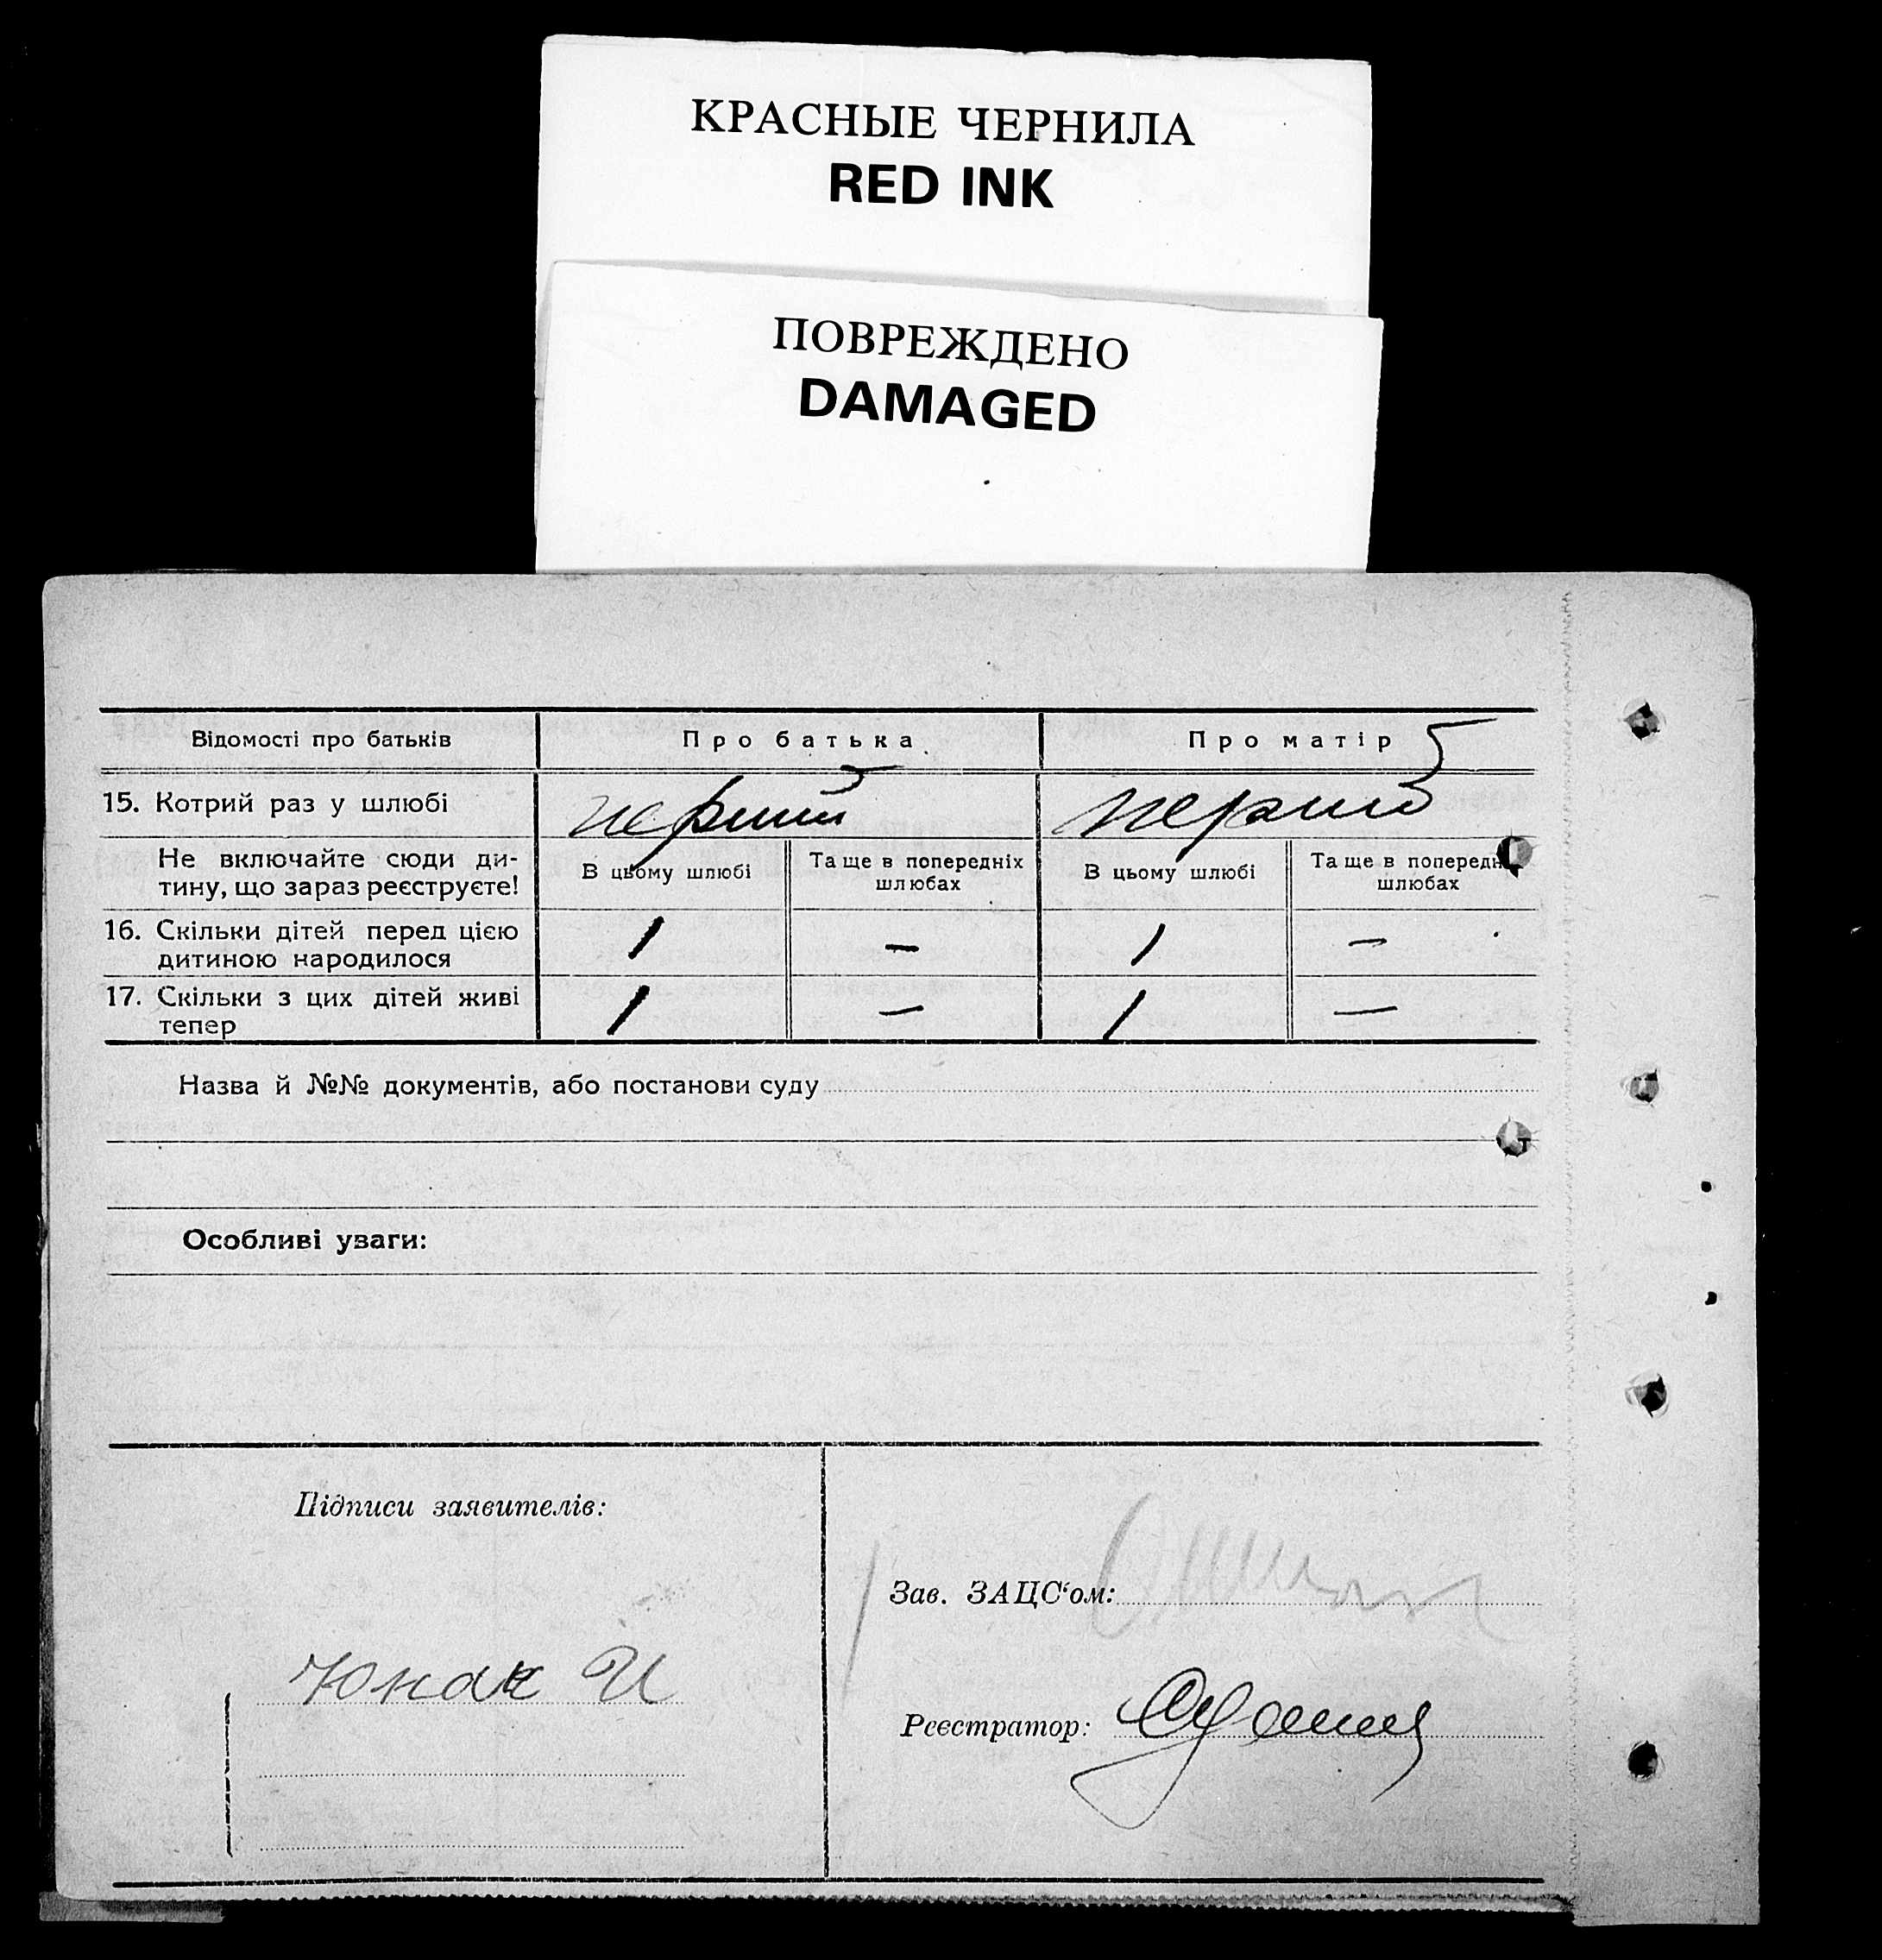 КРАСНЫЕ ЧЕРНИЛА
RED INK
ПОВРЕЖДЕНО
DAMAGED
Відомості про батьків Про батька Про матір
15. Котрий раз у шлюбі перший перший
Не включайте сюди ди-
тину, що зараз реєструєте!
В цьому шлюбі
Та ще в попередніх
шлюбах
В цьому шлюбі
Та ще в попередн
шлюбах
16. Скільки дітей перед цією
дитиною народилося
1 — 1 —
17. Скільки з цих дітей живі
тепер
1 — 1 —
Назва й №№ документів, або постанови суду
Особливі уваги:
Підписи заявителів:
Юнак И
Зав. ЗАЦС‘ом:
Реєстратор: